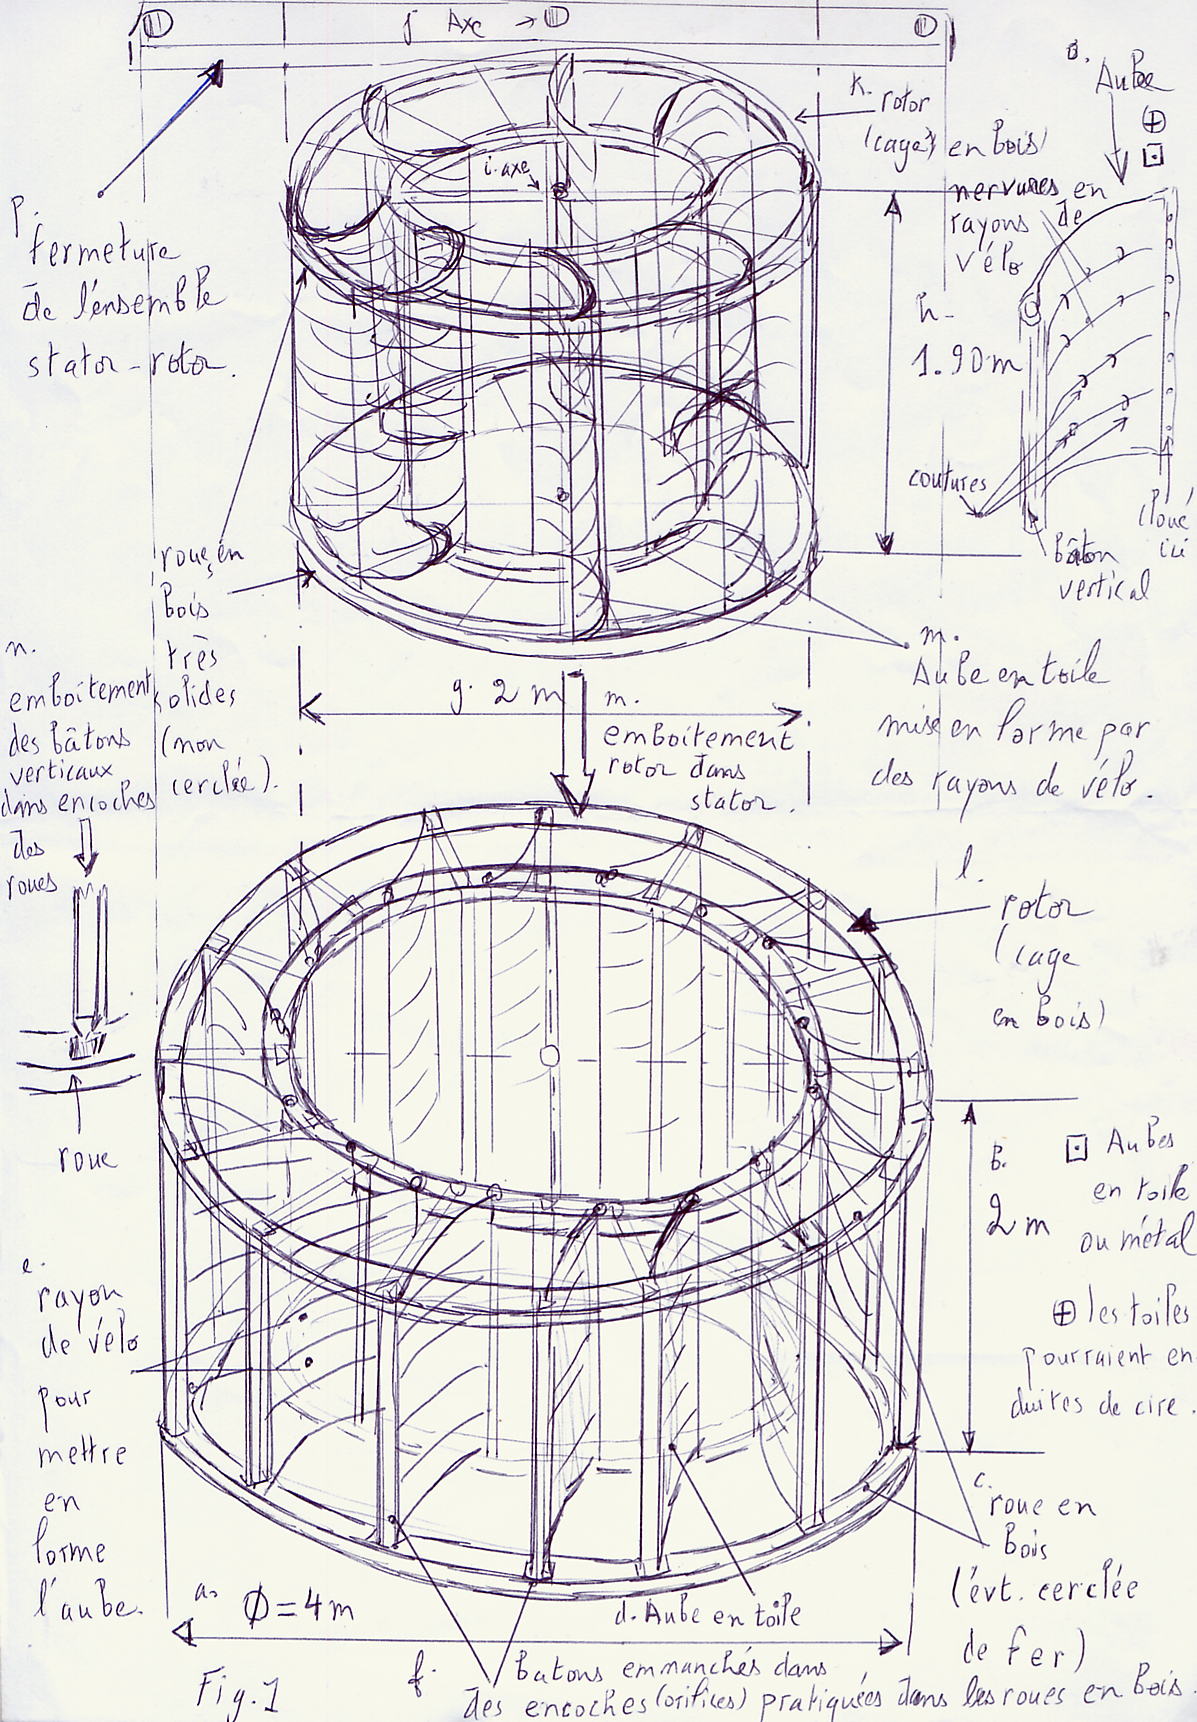 j Axe →
o.
Aubee
⊕
⊡
k. rotor
(cage) en bois)
i. axe
nervures en
rayons de
vélo
p.
fermeture
de l'ensemble
stator-rotor.
h-
1.90m
coutures
cloué
ici
bâton
vertical
roues en
bois
très
solides
(non
cerclée).
n.
emboitement
des bâtons
verticaux
dans encoches
des
roues
roue
g. 2 m
m.
emboitement
rotor dans
stator.
m.
Aube en toile
mise en forme par
des rayons de vélo.
l.
rotor
(cage
en bois)
b.
2 m
⊡ Aubes
en toile
ou métal
⊕ les toiles
pourraient en
duites de cire.
e.
rayon
de vélo
pour
mettre
en
forme
l'aube.
c.
roue en
bois
(évt. cerclée
de fer)
a. Ø = 4 m
d. Aube en toile
Fig. 1
f. batons emmanchés dans
des encoches (orifices) pratiquées dans les roues en bois.